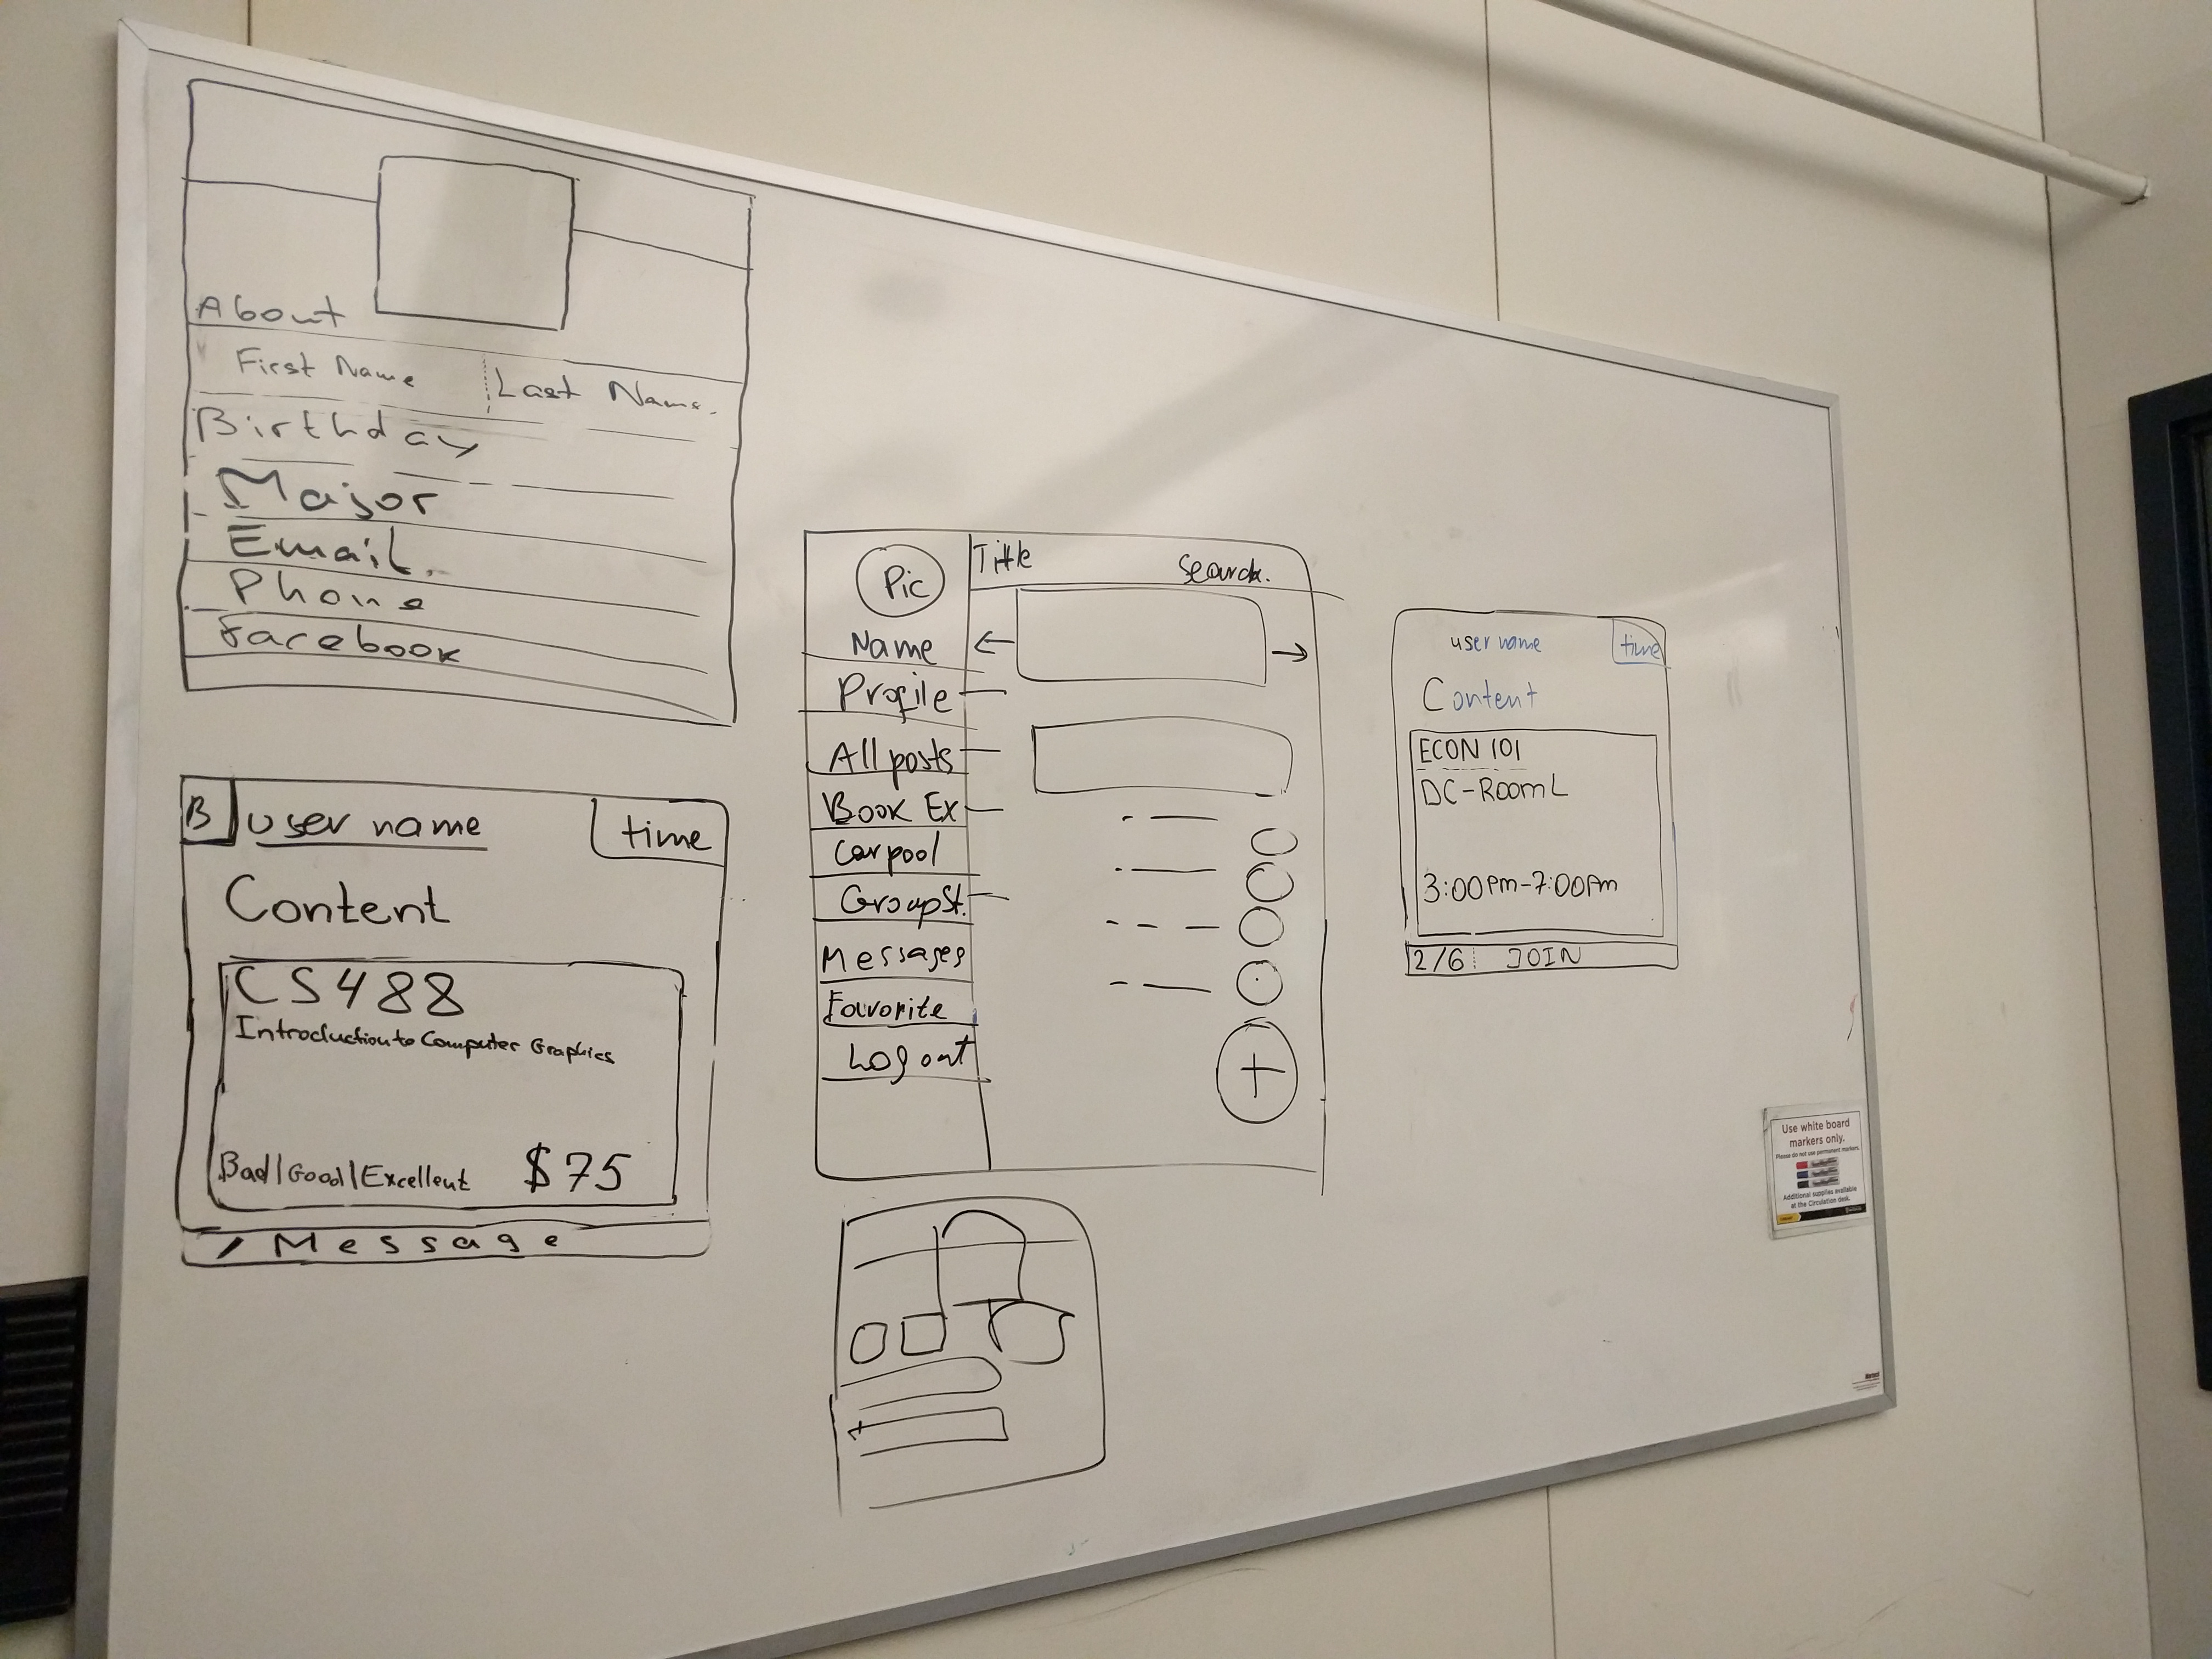 About
First Name Last Name.
Birthday
Major
Email.
Phone
Facebook
B user name time
Content
CS488
Introduction to Computer Graphics
Bad/Good/Excellent $75
Message
Pic
Name
Profile
All posts
Book Ex
Carpool
GroupSt.
Messages
Favorite
Log out
Title Search.
+
user name time
Content
ECON 101
DC-Room L
3:00pm-7:00pm
2/6 JOIN
Use white board
markers only.
Please do not use permanent markers.
Additional supplies available
at the Circulation desk.